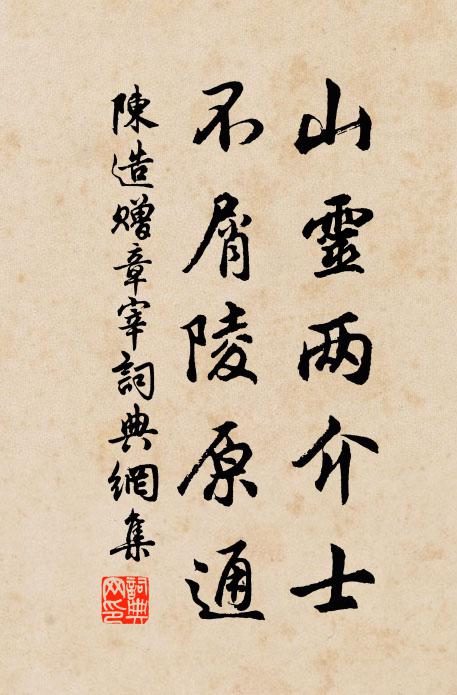 山靈两介士
不屑陵原通
陳造贈章宰詞典網集
詞典网印